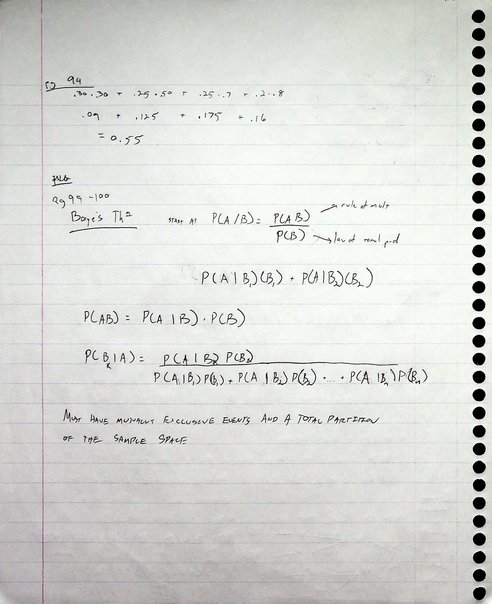 pg 94
.30 .30 + .25 .50 + .25 .7 + .2 .8
.09 + .125 + .175 + .16
= 0.55
pg 99-100
Baye's Thm
START AT P(A/B) = P(AB) / P(B)
→ rule of mult
→ law of total prob
P(A|B₁)(B₁) + P(A|B₂)(B₂)
P(AB) = P(A|B) · P(B)
P(Bₖ|A) = P(A|Bₖ) P(Bₖ) / P(A|B₁)P(B₁) + P(A|B₂)P(B₂) + ... + P(A|Bₙ)P(Bₙ)
MUST HAVE MUTUALLY EXCLUSIVE EVENTS AND A TOTAL PARTITION
OF THE SAMPLE SPACE